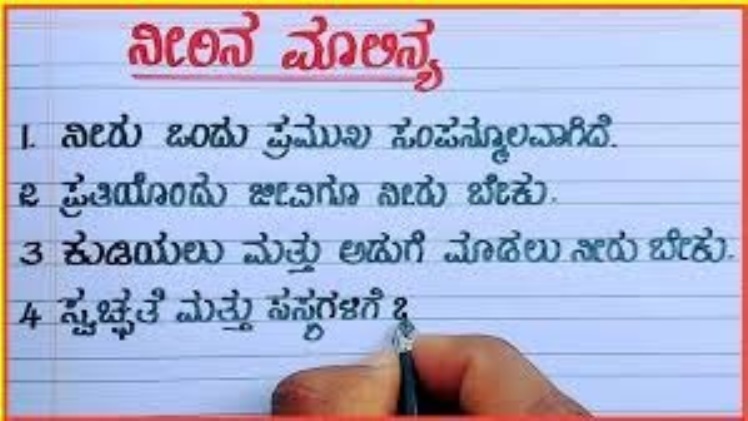 ನೀರಿನ ಮಾಲಿನ್ಯ
1. ನೀರು ಒಂದು ಪ್ರಮುಖ ಸಂಪನ್ಮೂಲವಾಗಿದೆ.
೭ ಪ್ರತಿಯೊಂದು ಜೀವಿಗೂ ನೀರು ಬೇಕು.
3 ಕುಡಿಯಲು ಮತ್ತು ಅಡುಗೆ ಮಾಡಲು ನೀರು ಬೇಕು.
4 ಸ್ವಚ್ಛತೆ ಮತ್ತು ಸಸ್ಯಗಳಿಗೆ